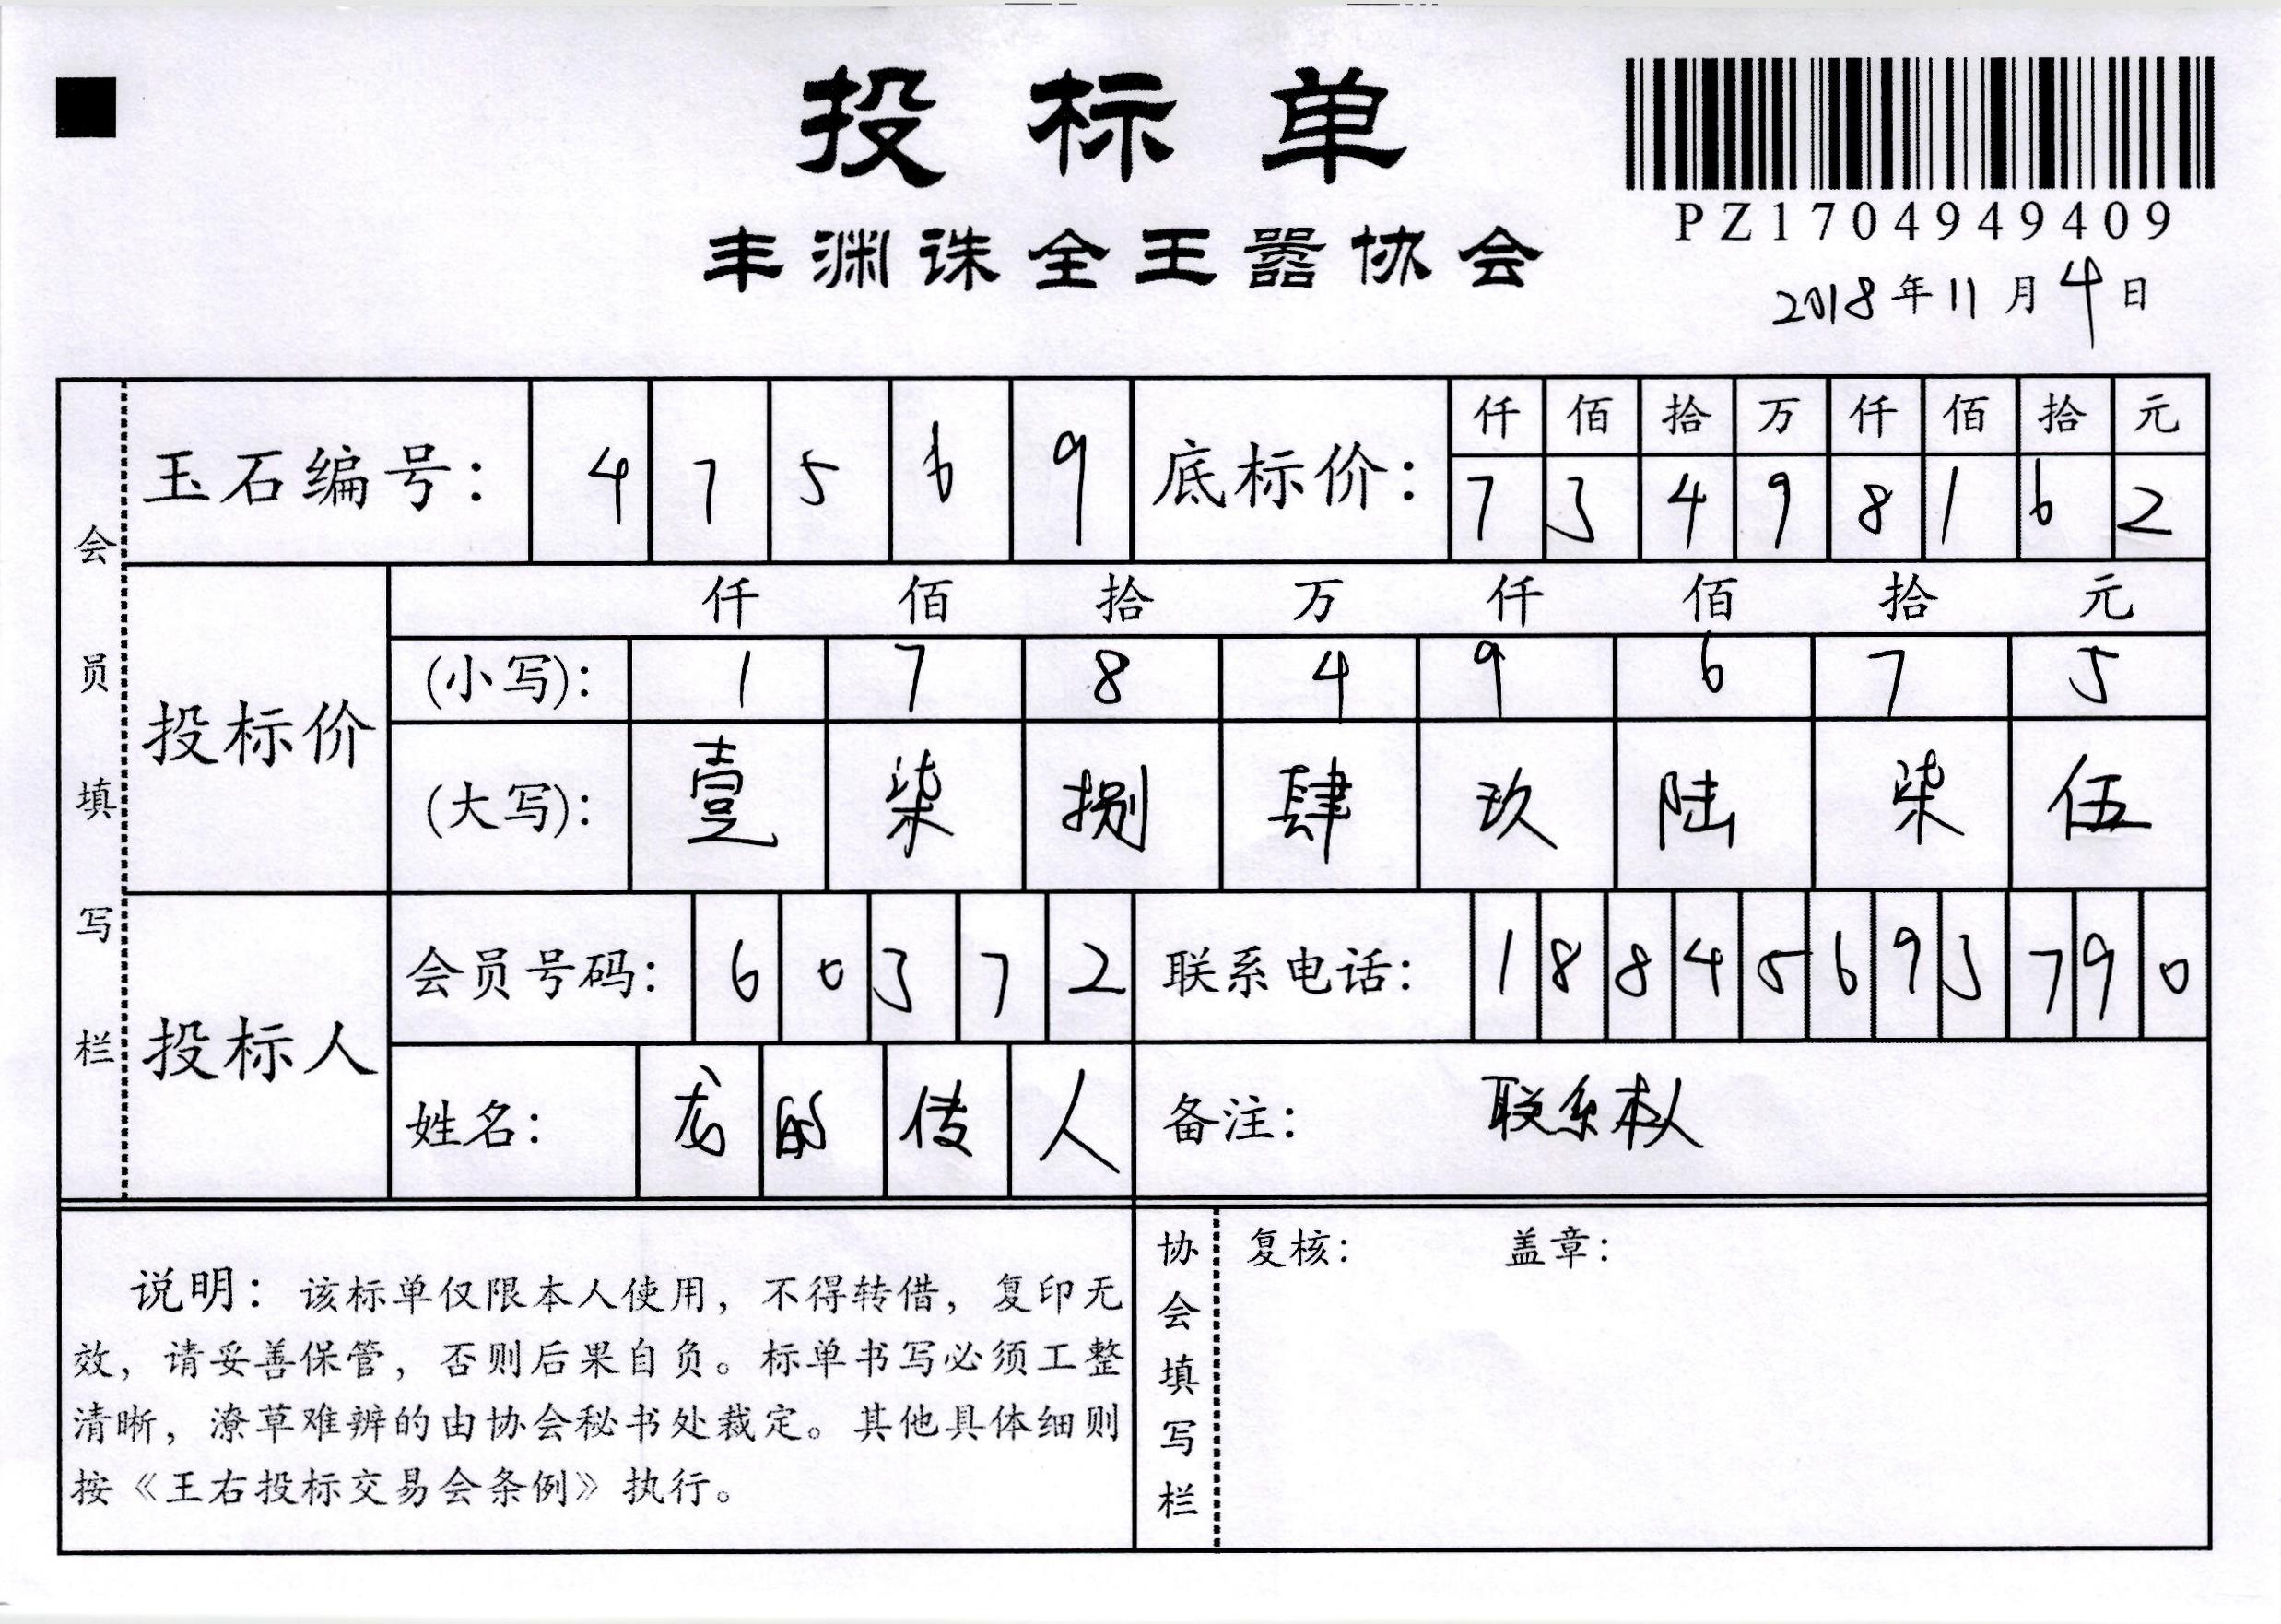 投标单
丰渊诛全王嚣协会
PZ1704949409
2018年11月4日
会员填写栏
玉石编号: 4 7 5 6 9
底标价: 仟 佰 拾 万 仟 佰 拾 元
7 3 4 9 8 1 6 2
投标价
仟 佰 拾 万 仟 佰 拾 元
(小写): 1 7 8 4 9 6 7 5
(大写): 壹 柒 捌 肆 玖 陆 柒 伍
投标人
会员号码: 6 0 3 7 2
联系电话: 1 8 8 4 5 6 9 3 7 9 0
姓名: 龙 的 传 人
备注: 联系本人
说明: 该标单仅限本人使用, 不得转借, 复印无
效, 请妥善保管, 否则后果自负。标单书写必须工整
清晰, 潦草难辨的由协会秘书处裁定。其他具体细则
按《王右投标交易会条例》执行。
协会填写栏
复核: 盖章: